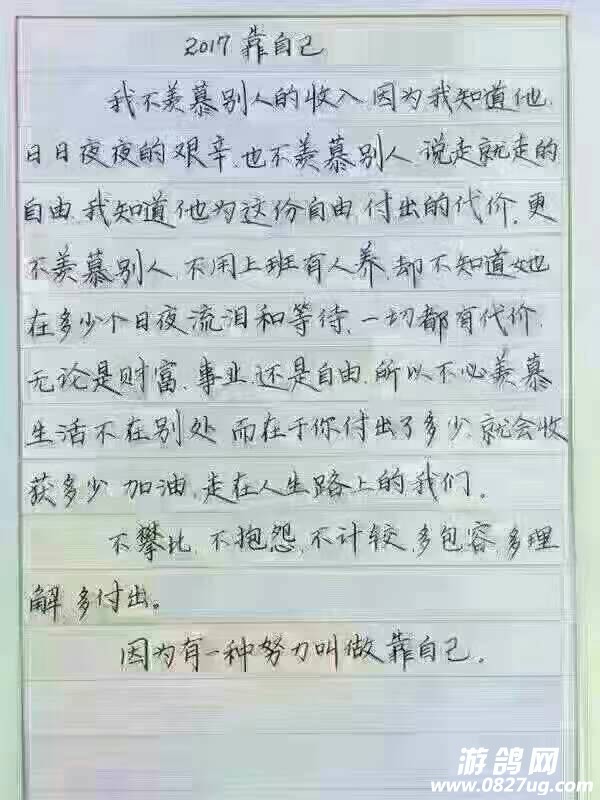 2017 靠自己
我不羡慕别人的收入因为我知道他.
日日夜夜的艰辛.也不羡慕别人.说走就走的
自由.我知道他为这份自由.付出的代价.更
不羡慕别人.不用上班有人养.却不知道她
在多少个日夜流泪和等待.一切都有代价.
无论是财富.事业.还是自由.所以不必羡慕
生活不在别处 而在于你付出了多少.就会收
获多少 加油.走在人生路上的我们。
不攀比.不抱怨.不计较.多包容.多理
解.多付出。
因为有一种努力叫做靠自己。
游鸽网
www.0827ug.com